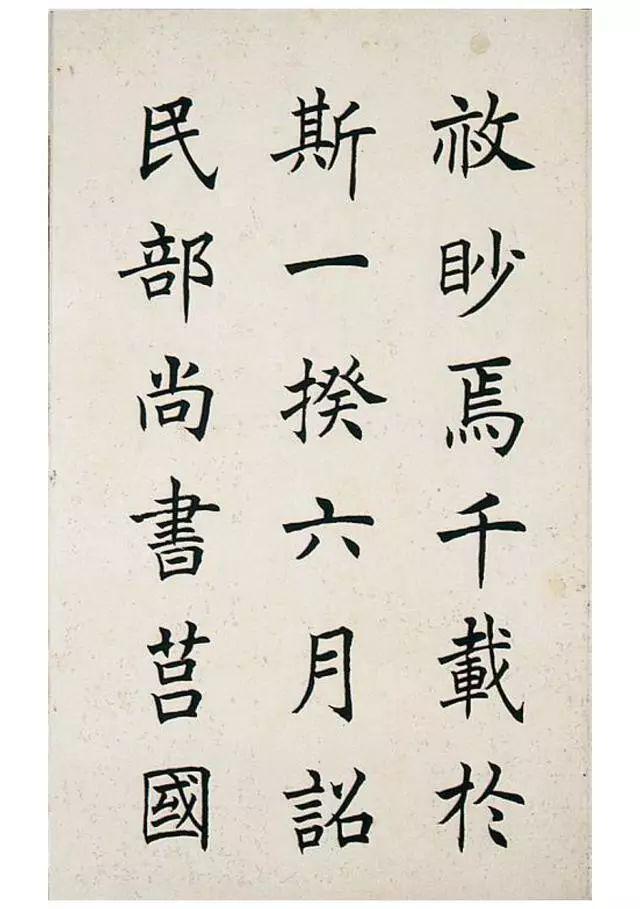 敘眇焉千載於
斯一揆六月詔
民部尚書莒國